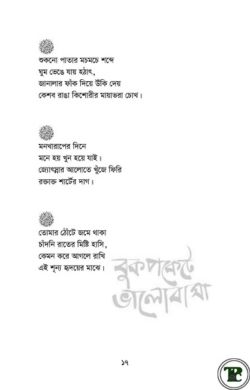 শুকনো পাতার মচমচে শব্দে
ঘুম ভেঙে যায় হঠাৎ,
জানালার ফাঁক দিয়ে উঁকি দেয়
কেশব রাঙা কিশোরীর মায়াভরা চোখ।
মনখারাপের দিনে
মনে হয় খুন হয়ে যাই।
জ্যোৎস্নার আলোতে খুঁজে ফিরি
রক্তাক্ত শার্টের দাগ।
তোমার ঠোঁটে জমে থাকা
চাঁদনি রাতের মিষ্টি হাসি,
কেমন করে আগলে রাখি
এই শূন্য হৃদয়ের মাঝে।
বুকপকেটে
ভালোবাসা
১৭